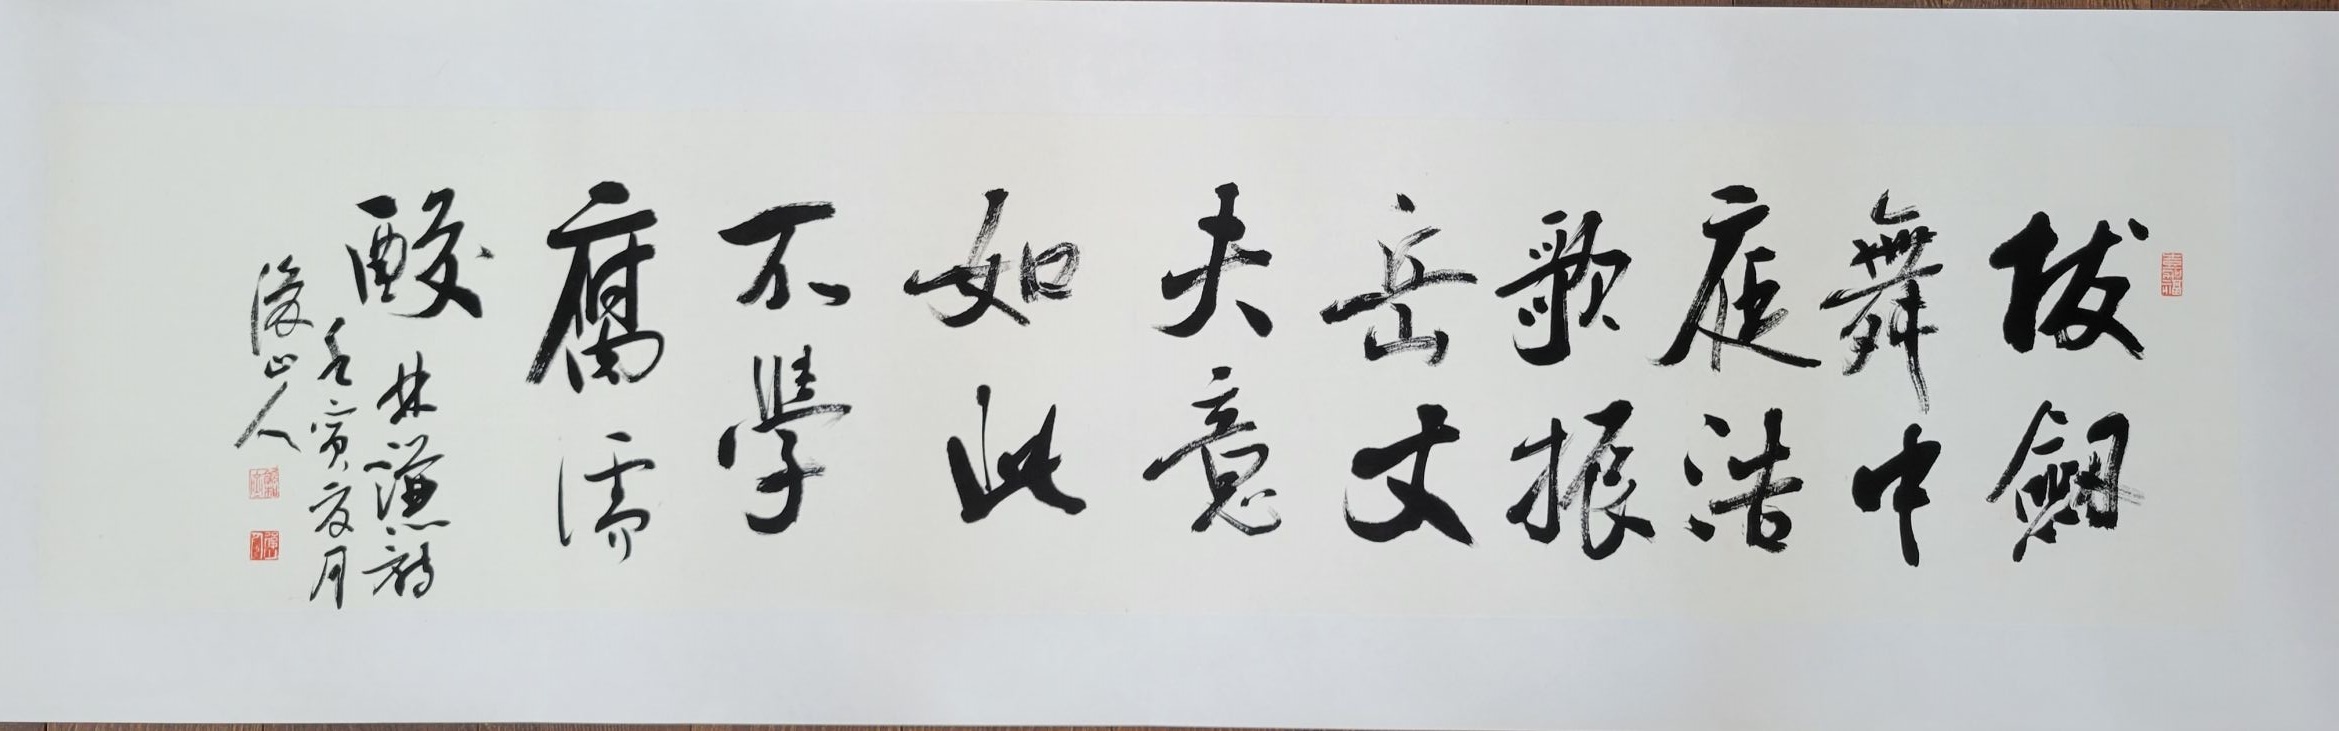 拔劍
舞中
庭浩
歌振
岳丈
夫意
如此
不學
腐儒
酸
林謙詩
壬寅夏月
山人